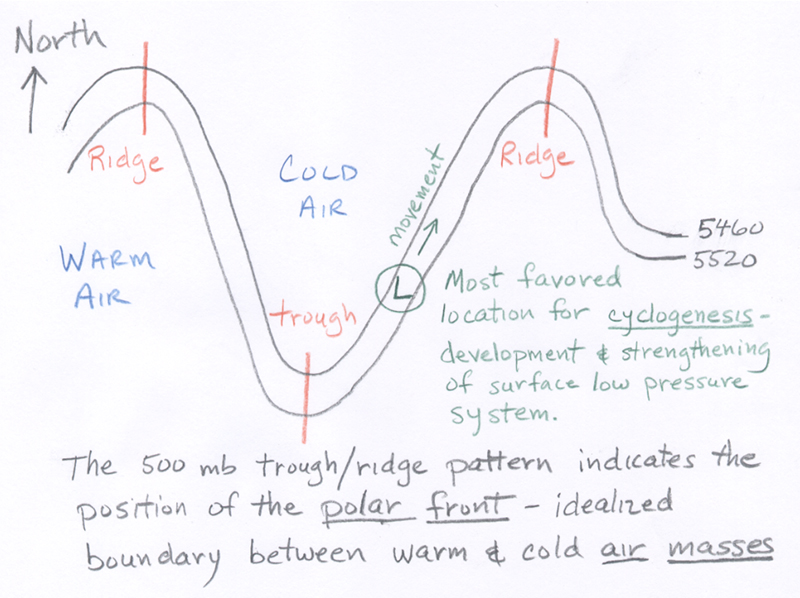 North
Ridge
Ridge
COLD
AIR
movement
WARM
AIR
5460
5520
L
trough
Most favored
location for cyclogenesis -
development & strengthening
of surface low pressure
system.
The 500 mb trough/ridge pattern indicates the
position of the polar front - idealized
boundary between warm & cold air masses